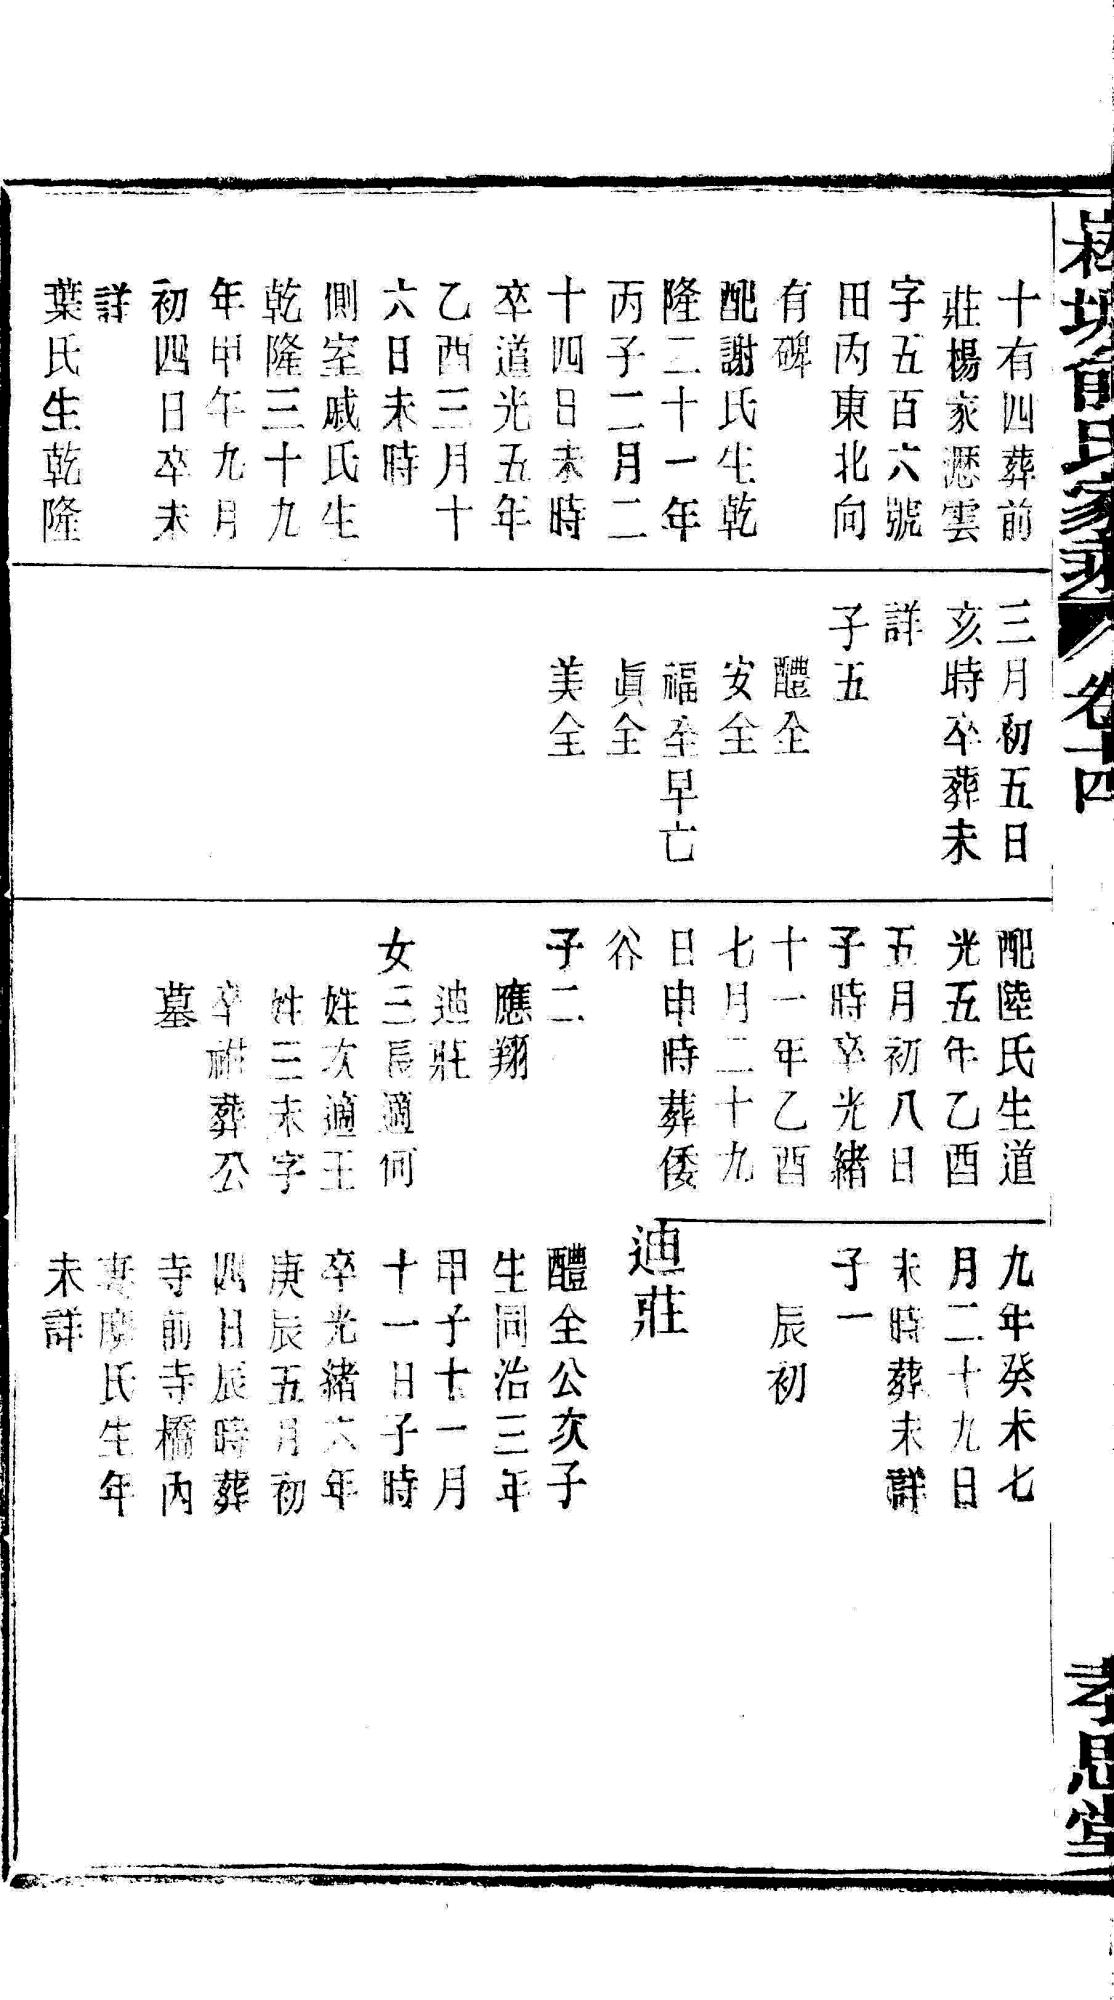 十有四葬前
莊楊家瀝雲
字五百六號
田丙東北向
有碑
配謝氏生乾
隆二十一年
丙子二月二
十四日未時
卒道光五年
乙酉三月十
六日未時
側室戚氏生
乾隆三十九
年甲午九月
初四日卒未
詳
葉氏生乾隆
三月初五日
亥時卒葬未
詳
子五
醴全
安全
福全早亡
眞全
美全
配陸氏生道
光五年乙酉
五月初八日
子時卒光緒
十一年乙酉
七月二十九
日申時葬倭
谷
子二
應翔
迪莊
女三長適何
姓次適王
姓三未字
卒祔葬公
墓
九年癸未七
月二十九日
未時葬未詳
子一
辰初
迪莊
醴全公次子
生同治三年
甲子十一月
十一日子時
卒光緒六年
庚辰五月初
四日辰時葬
寺前寺橋內
氏生年
未詳
塘前氏家乘 卷十四
孝思堂